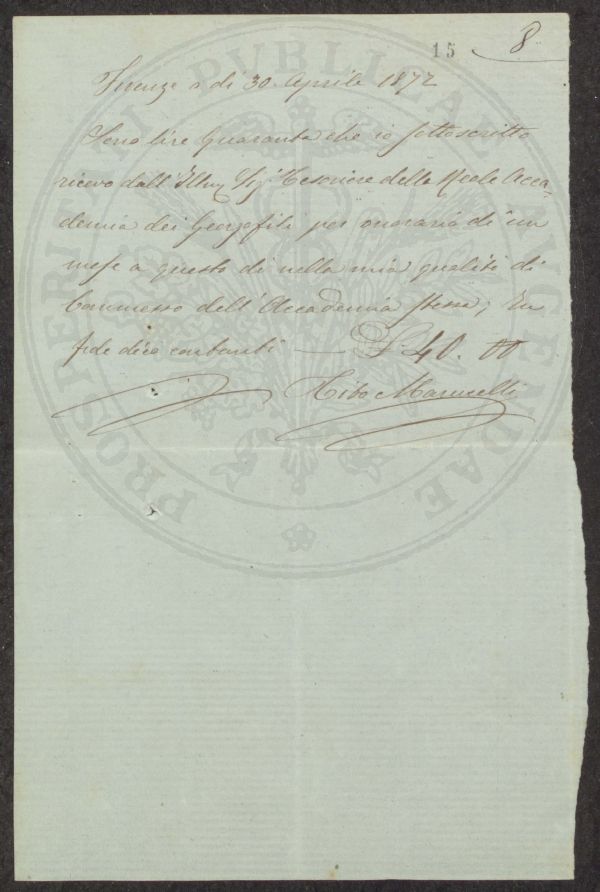 15 8
Firenze a dì 30 Aprile 1872
Sono lire Quaranta che io sottoscritto
ricevo dall' Illmo Sigr Tesoriere della Reale Acca-
demia dei Georgofili per onorario di un
mese a questo dì nella mia qualità di
Commesso dell' Accademia stessa; In
fede dico contanti — £ 40. 00
Marucelli
PROSPERITATI PVBLICAE AVGENDAE